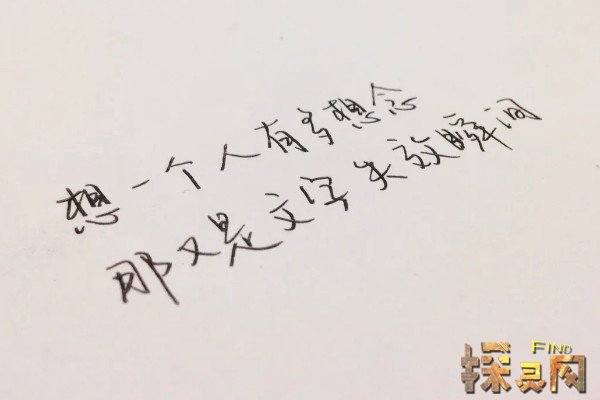 想一个人有多想念
那又是文字失效瞬间
FIND
探灵网